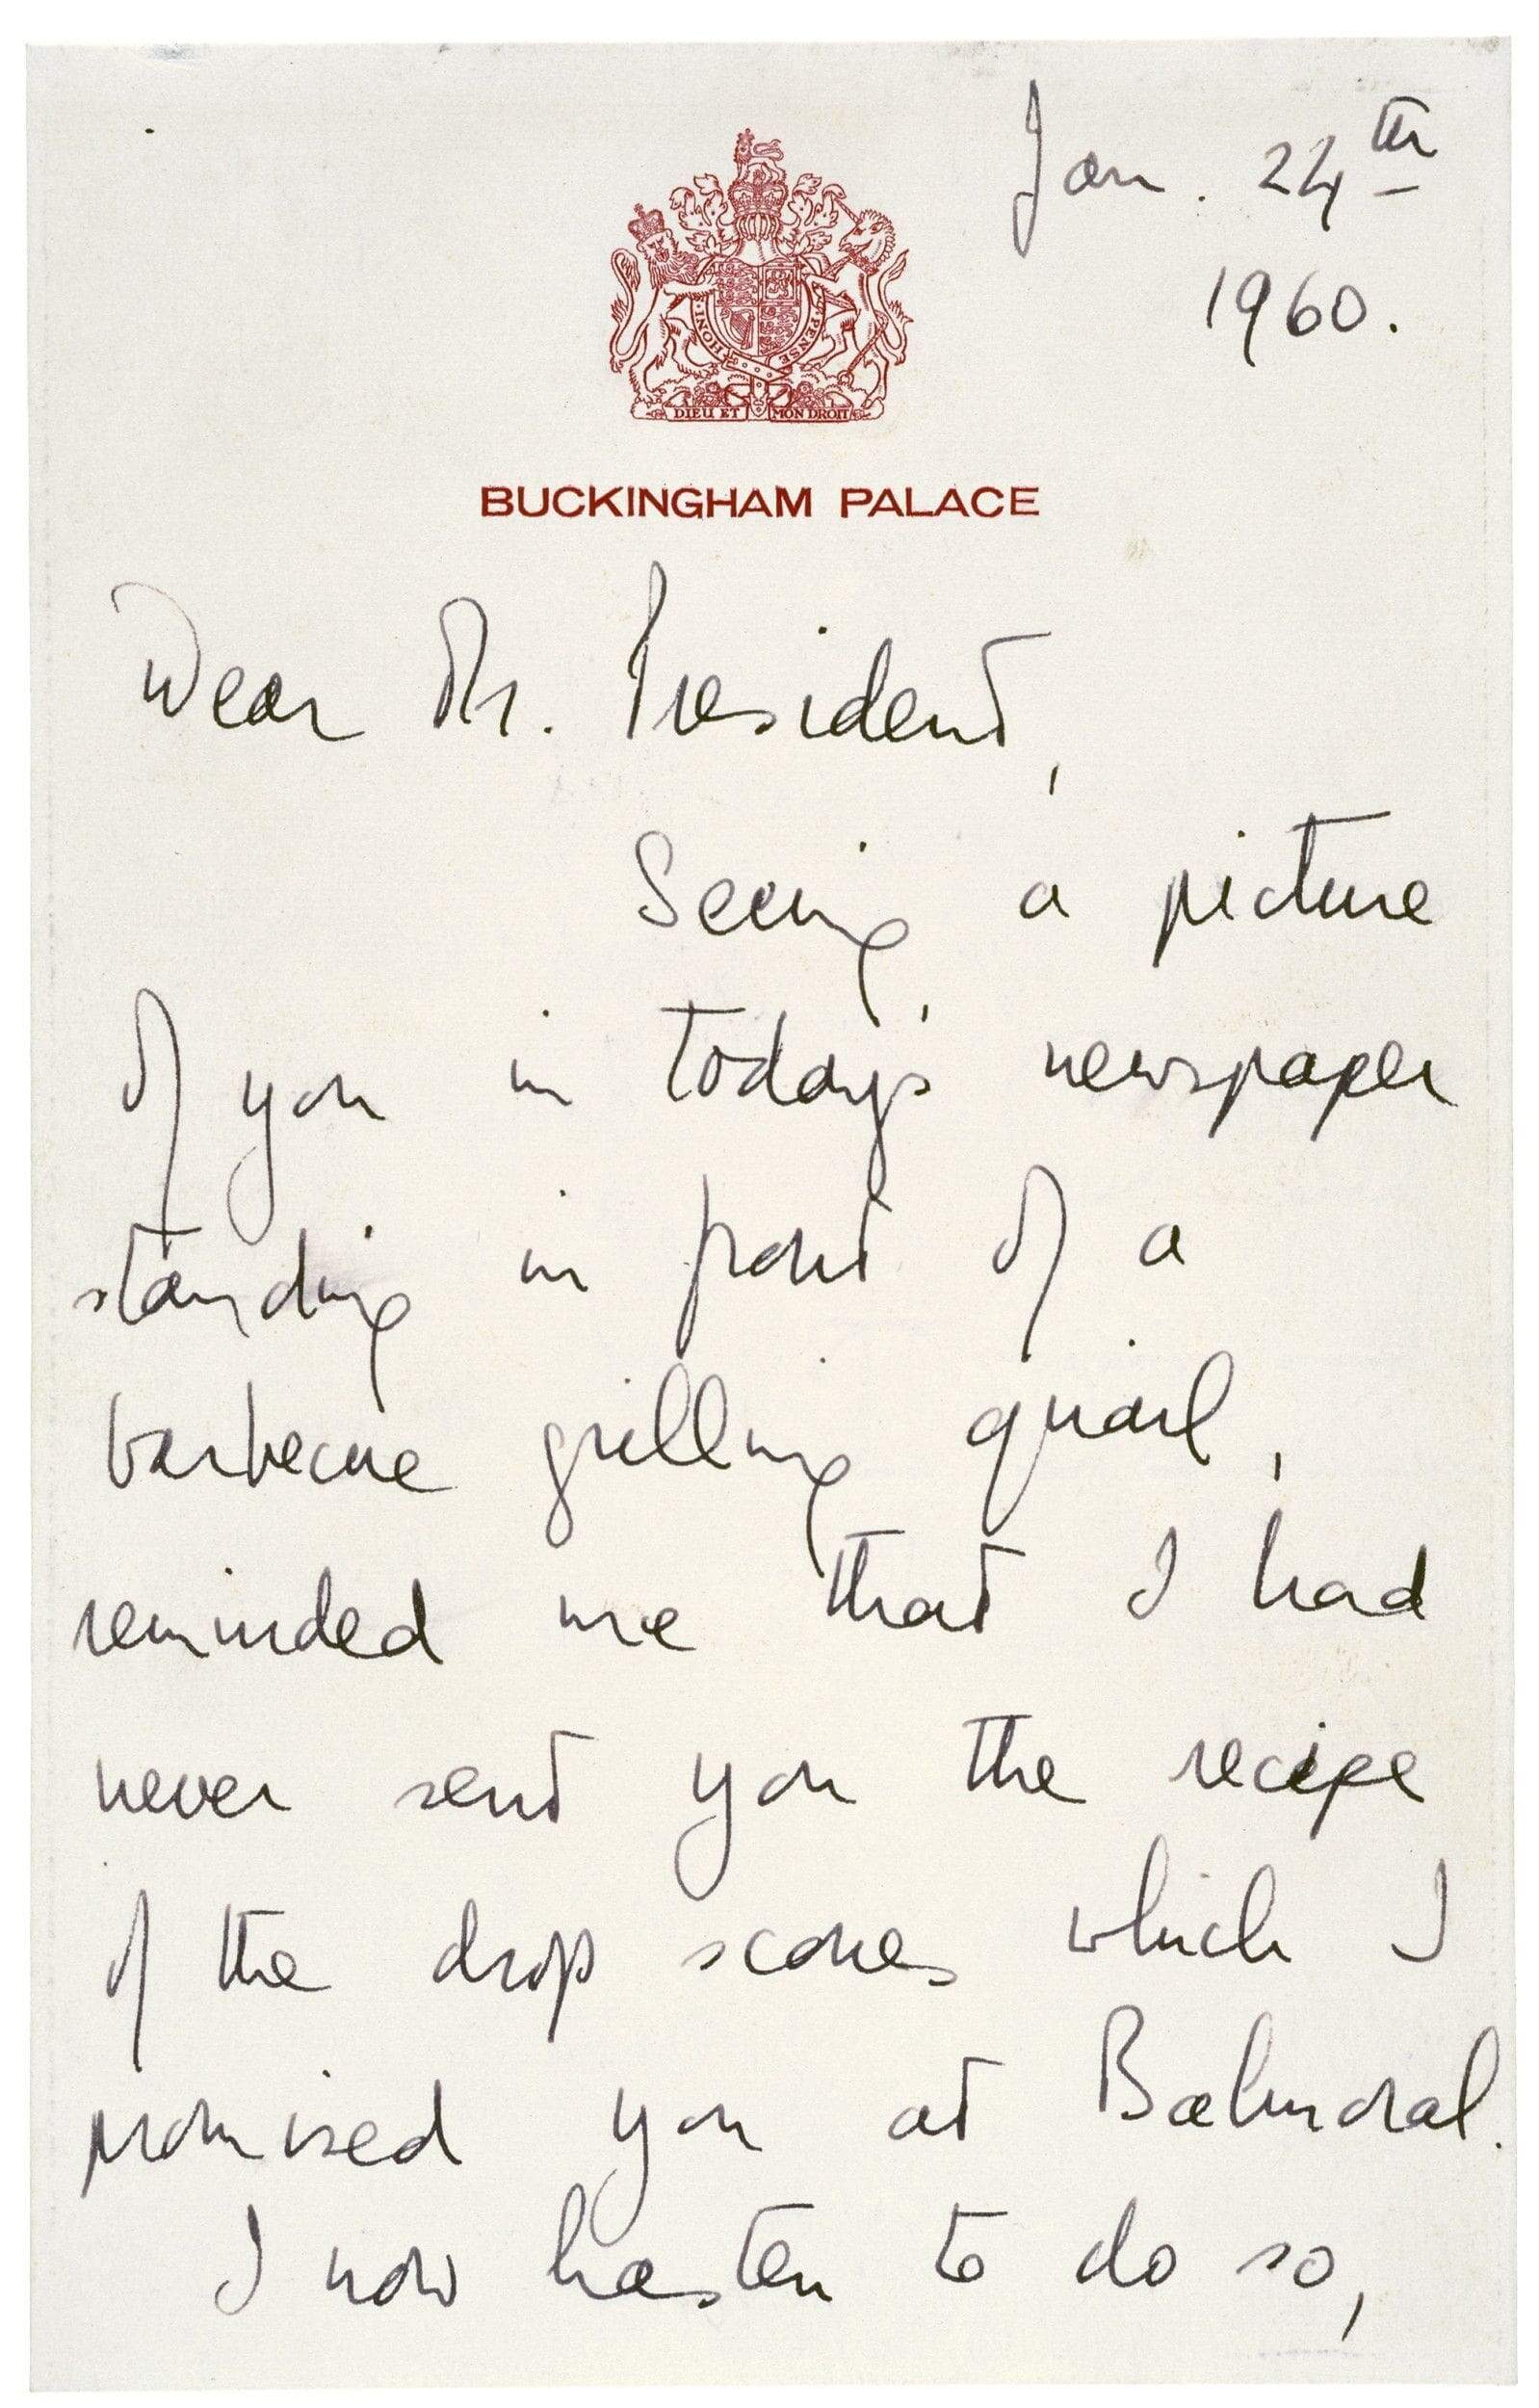 Jan. 24th
1960.
HONI PENSE
DIEU ET MON DROIT
BUCKINGHAM PALACE
Dear Mr. President,
Seeing a picture
of you in today's newspaper
standing in front of a
barbecue grilling quail,
reminded me that I had
never sent you the recipe
of the drop scones which I
promised you at Balmoral.
I now hasten to do so,